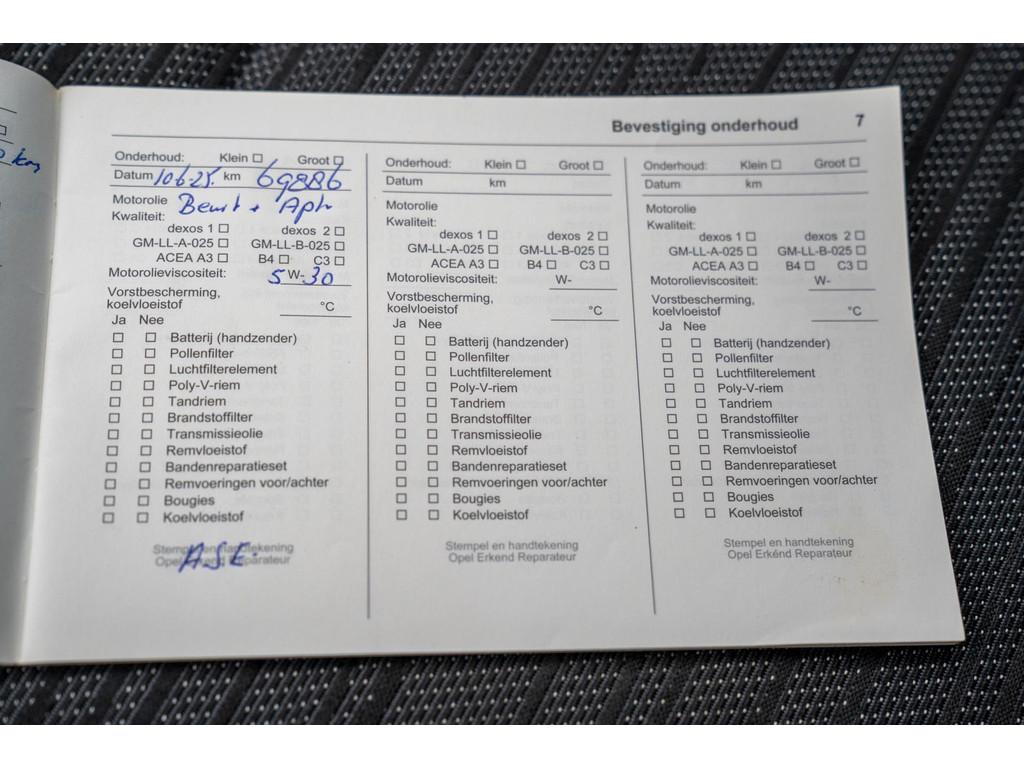 km
Bevestiging onderhoud 7
Onderhoud: Klein ☐ Groot ☐
Datum 10-6-25. km 69886
Motorolie
Kwaliteit:
dexos 1 ☐ dexos 2 ☐
GM-LL-A-025 ☐ GM-LL-B-025 ☐
ACEA A3 ☐ B4 ☐ C3 ☐
Motorolieviscositeit: 5 W- 30
Vorstbescherming,
koelvloeistof °C
Ja Nee
☐ ☐ Batterij (handzender)
☐ ☐ Pollenfilter
☐ ☐ Luchtfilterelement
☐ ☐ Poly-V-riem
☐ ☐ Tandriem
☐ ☐ Brandstoffilter
☐ ☐ Transmissieolie
☐ ☐ Remvloeistof
☐ ☐ Bandenreparatieset
☐ ☐ Remvoeringen voor/achter
☐ ☐ Bougies
☐ ☐ Koelvloeistof
Stempel en handtekening
Opel Erkend Reparateur
ASE.
Onderhoud: Klein ☐ Groot ☐
Datum km
Motorolie
Kwaliteit:
dexos 1 ☐ dexos 2 ☐
GM-LL-A-025 ☐ GM-LL-B-025 ☐
ACEA A3 ☐ B4 ☐ C3 ☐
Motorolieviscositeit: W-
Vorstbescherming,
koelvloeistof °C
Ja Nee
☐ ☐ Batterij (handzender)
☐ ☐ Pollenfilter
☐ ☐ Luchtfilterelement
☐ ☐ Poly-V-riem
☐ ☐ Tandriem
☐ ☐ Brandstoffilter
☐ ☐ Transmissieolie
☐ ☐ Remvloeistof
☐ ☐ Bandenreparatieset
☐ ☐ Remvoeringen voor/achter
☐ ☐ Bougies
☐ ☐ Koelvloeistof
Stempel en handtekening
Opel Erkénd Reparateur
Onderhoud: Klein ☐ Groot ☐
Datum km
Motorolie
Kwaliteit:
dexos 1 ☐ dexos 2 ☐
GM-LL-A-025 ☐ GM-LL-B-025 ☐
ACEA A3 ☐ B4 ☐ C3 ☐
Motorolieviscositeit: W-
Vorstbescherming,
koelvloeistof °C
Ja Nee
☐ ☐ Batterij (handzender)
☐ ☐ Pollenfilter
☐ ☐ Luchtfilterelement
☐ ☐ Poly-V-riem
☐ ☐ Tandriem
☐ ☐ Brandstoffilter
☐ ☐ Transmissieolie
☐ ☐ Remvloeistof
☐ ☐ Bandenreparatieset
☐ ☐ Remvoeringen voor/achter
☐ ☐ Bougies
☐ ☐ Koelvloeistof
Stempel en handtekening
Opel Erkend Reparateur